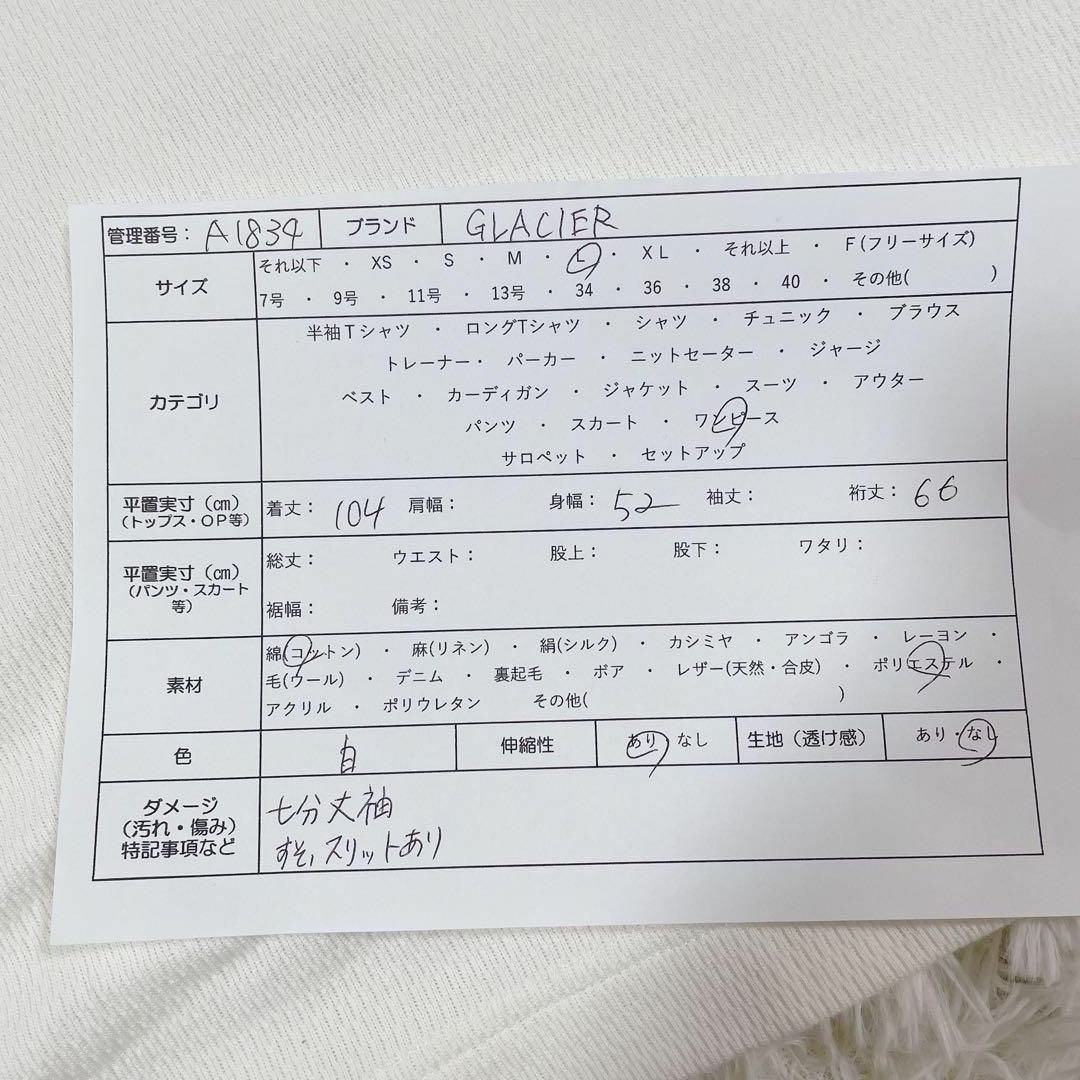 管理番号： A1834 ブランド GLACIER
サイズ
それ以下 ・ XS ・ S ・ M ・ L ・ XL ・ それ以上 ・ F(フリーサイズ)
7号 ・ 9号 ・ 11号 ・ 13号 ・ 34 ・ 36 ・ 38 ・ 40 ・ その他( )
カテゴリ
半袖Tシャツ ・ ロングTシャツ ・ シャツ ・ チュニック ・ ブラウス
トレーナー・ パーカー ・ ニットセーター ・ ジャージ
ベスト ・ カーディガン ・ ジャケット ・ スーツ ・ アウター
パンツ ・ スカート ・ ワンピース
サロペット ・ セットアップ
平置実寸（㎝）
（トップス・OP等）
着丈： 104 肩幅： 身幅： 52 袖丈： 裄丈： 66
平置実寸（㎝）
（パンツ・スカート
等）
総丈： ウエスト： 股上： 股下： ワタリ：
裾幅： 備考：
素材
綿(コットン) ・ 麻(リネン) ・ 絹(シルク) ・ カシミヤ ・ アンゴラ ・ レーヨン ・
毛(ウール) ・ デニム ・ 裏起毛 ・ ボア ・ レザー(天然・合皮) ・ ポリエステル ・
アクリル ・ ポリウレタン その他( )
色 白 伸縮性 あり・なし 生地（透け感） あり・なし
ダメージ
（汚れ・傷み）
特記事項など
七分丈袖
すそ、スリットあり